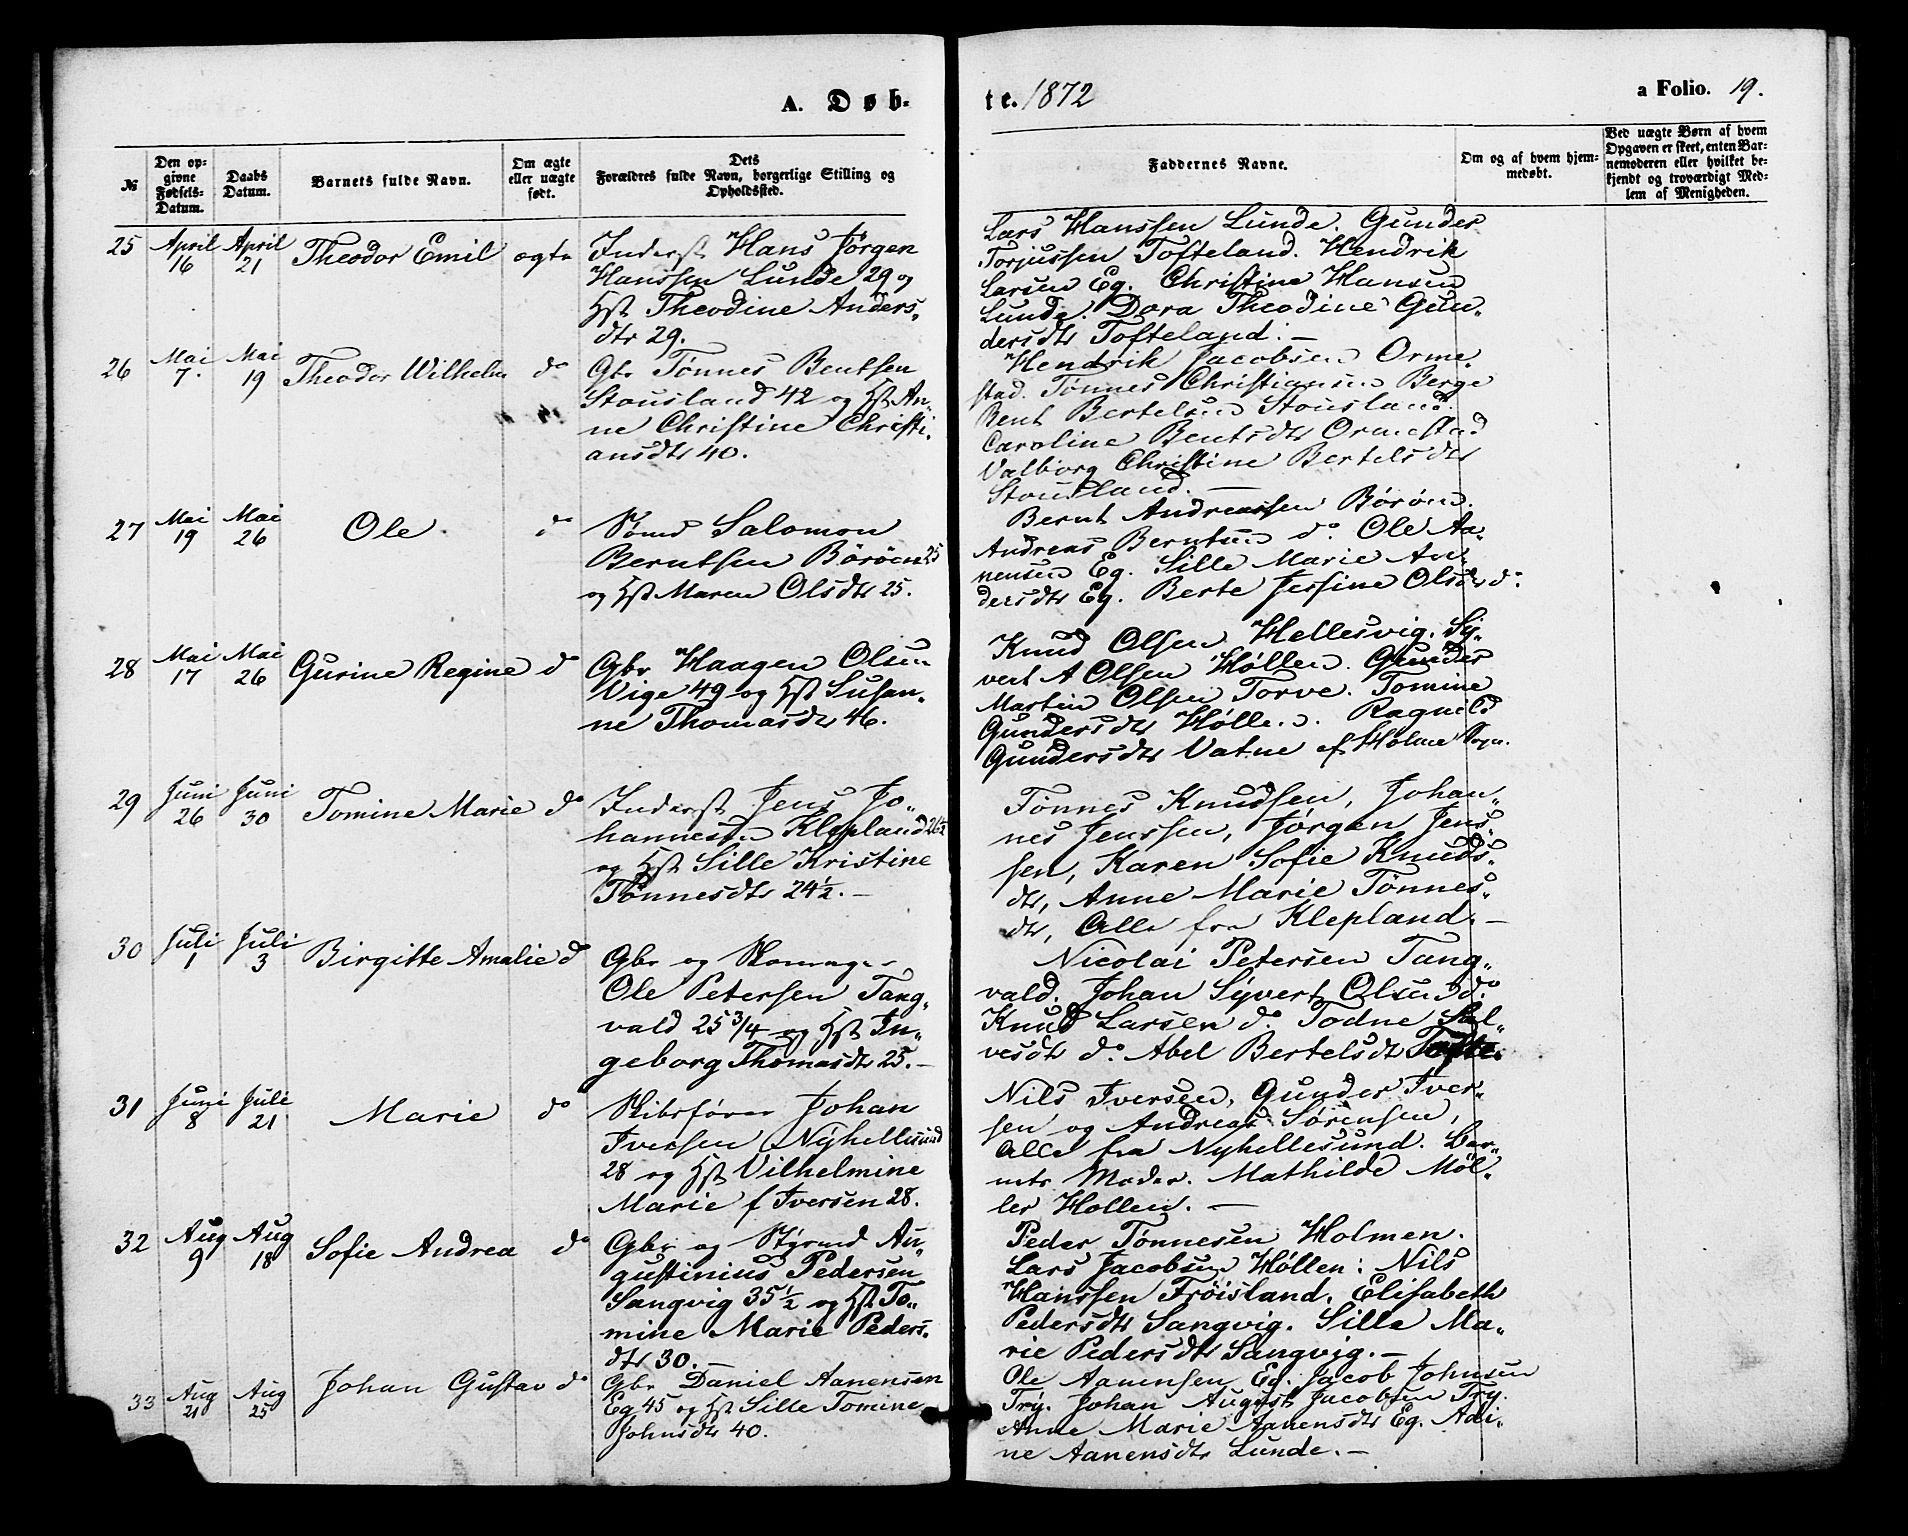 A. Døb-
te. 1872
a Folio. 19.
№
Den op-
givne
Fødsels-
Datum.
Daabs
Datum.
Barnets fulde Navn.
Om ægte
eller uægte
født.
Dets
Forældres fulde Navn, borgerlige Stilling og
Opholdssted.
Faddernes Navne.
Om og af hvem hjem-
medøbt.
Ved uægte Børn af hvem
Opgaven er skeet, enten Bar-
nemoderen eller hvilket be-
kjendt og troværdigt Med-
lem af Menigheden.
25 April 16 April 21 Theodor Emil ægte
Inderst Hans Jørgen
Hanssen Lunde 29 og
Hst Theodine Anders„
dtr 29.
Lars Hanssen Lunde. Gunder
Torjussen Tofteland. Hendrik
Larsen Eg. Christine Hansen
Lunde. Dora Theodine Gun„
dersdtr Tofteland. —
26 Mai 7. Mai 19 Theodor Wilhelm do
Gbr Tønnes Bentsen
Stousland 42 og Hst An„
ne Christine Christi„
ansdtr 40.
Hendrik Jacobsen Orme„
stad. Tønnes Christiansen Berge
Bent Bertelsen Stousland.
Caroline Bentsdtr Ormestad
Valborg Christine Bertelsdtr
Stousland. —
27 Mai 19 Mai 26 Ole do
Sømd Salomon
Berntsen Börøen 25
og Hst Maren Olsdtr 25.
Bernt Andreassen Börøen.
Andreas Berntsen do. Ole Aa„
nensen Eg. Sille Marie An„
dersdtr Eg. Berte Jessine Olsdtr do.
28 Mai 17 Mai 26 Gurine Regine do
Gbr Haagen Olsen
Vige 49 og Hst Susan„
ne Thomasdtr 46.
Knud Olsen Hellesvig. Sy„
vert A Olsen Høllen. Gunder
Martin Olsen Torve. Tomine
Gundersdtr Høllen. Ragnild
Gundersdtr Vatne af Holme Sogn.
29 Juni 26 Juni 30 Tomine Marie do
Inderst Jens Jo„
hannesen Klepland 26½
og Hst Sille Kristine
Tønnesdtr 24½. —
Tönnes Knudsen, Johan„
nes Jenssen, Jørgen Jens„
sen, Karen Sofie Knuds„
dtr, Anne Marie Tönnes„
dtr, Alle fra Klepland. —
30 Juli 1 Juli 3 Birgitte Amalie do
Gbr og Skomager
Ole Petersen Tang„
vald 25 3/4 og Hst In„
geborg Thomasdtr 25. —
Nicolai Petersen Tang„
vald. Johan Syvert Olsen do.
Knud Larsen do. Todne Sal„
vesdtr do. Abel Bertelsdtr Tofte.
31 Juni 8 Juli 21 Marie do
Skibsfører Johan
Iversen Nyhellesund
28 og Hst Vilhelmine
Marie f Iversen 28.
Nils Iversen, Gunder Iver„
sen og Andreas Sørensen,
alle fra Nyhellesund. Bar„
nets Moder. Mathilde Möl„
ler Hollen. —
32 Aug 9 Aug 18 Sofie Andrea do
Gbr og Styrmd Au„
gustinius Pedersen
Sangvig 35½ og Hst To„
mine Marie Peders„
dtr 30. —
Peder Tønnesen Holmen.
Lars Jacobsen Høllen. Nils
Hanssen Frøisland. Elisabeth
Pedersdtr Sangvig. Sille Ma„
rie Pedersdtr Sangvig. —
33 Aug 21 Aug 25 Johan Gustav do
Gbr Daniel Aanensen
Eg 45 og Hst Sille Tomine
Johnsdtr 40.
Ole Aanensen Eg. Jacob Johnsen
Try. Johan August Jacobsen Try.
Anne Marie Aanensdtr Eg. Adi„
ne Aanensdtr Lunde. —